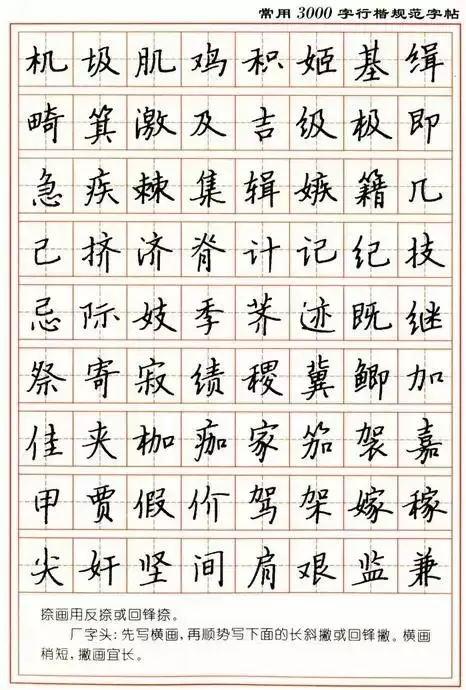 常用3000字行楷规范字帖
机圾肌鸡积姬基缉
畸箕激及吉级极即
急疾棘集辑嫉籍几
己挤济脊计记纪技
忌际妓季荠迹既继
祭寄寂绩稷冀鲫加
佳夹枷痂家笳袈嘉
甲贾假价驾架嫁稼
尖奸坚间肩艰监兼
捺画用反捺或回锋捺。
厂字头:先写横画,再顺势写下面的长斜撇或回锋撇。横画
稍短,撇画宜长。